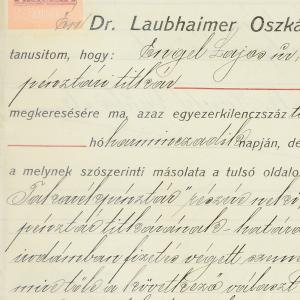 Én Dr. Laubhaimer Oszká
tanusitom, hogy: Engel Lajos úr,
pénztári titkár
megkeresésére ma, azaz egyezerkilenczszáz
hó harminczadik napján, dé
a melynek szószerinti másolata a tulsó oldalo
Takarékpénztár" részvé
pénztár titkárának - határo
irodámban fizetés végett
a következő választ